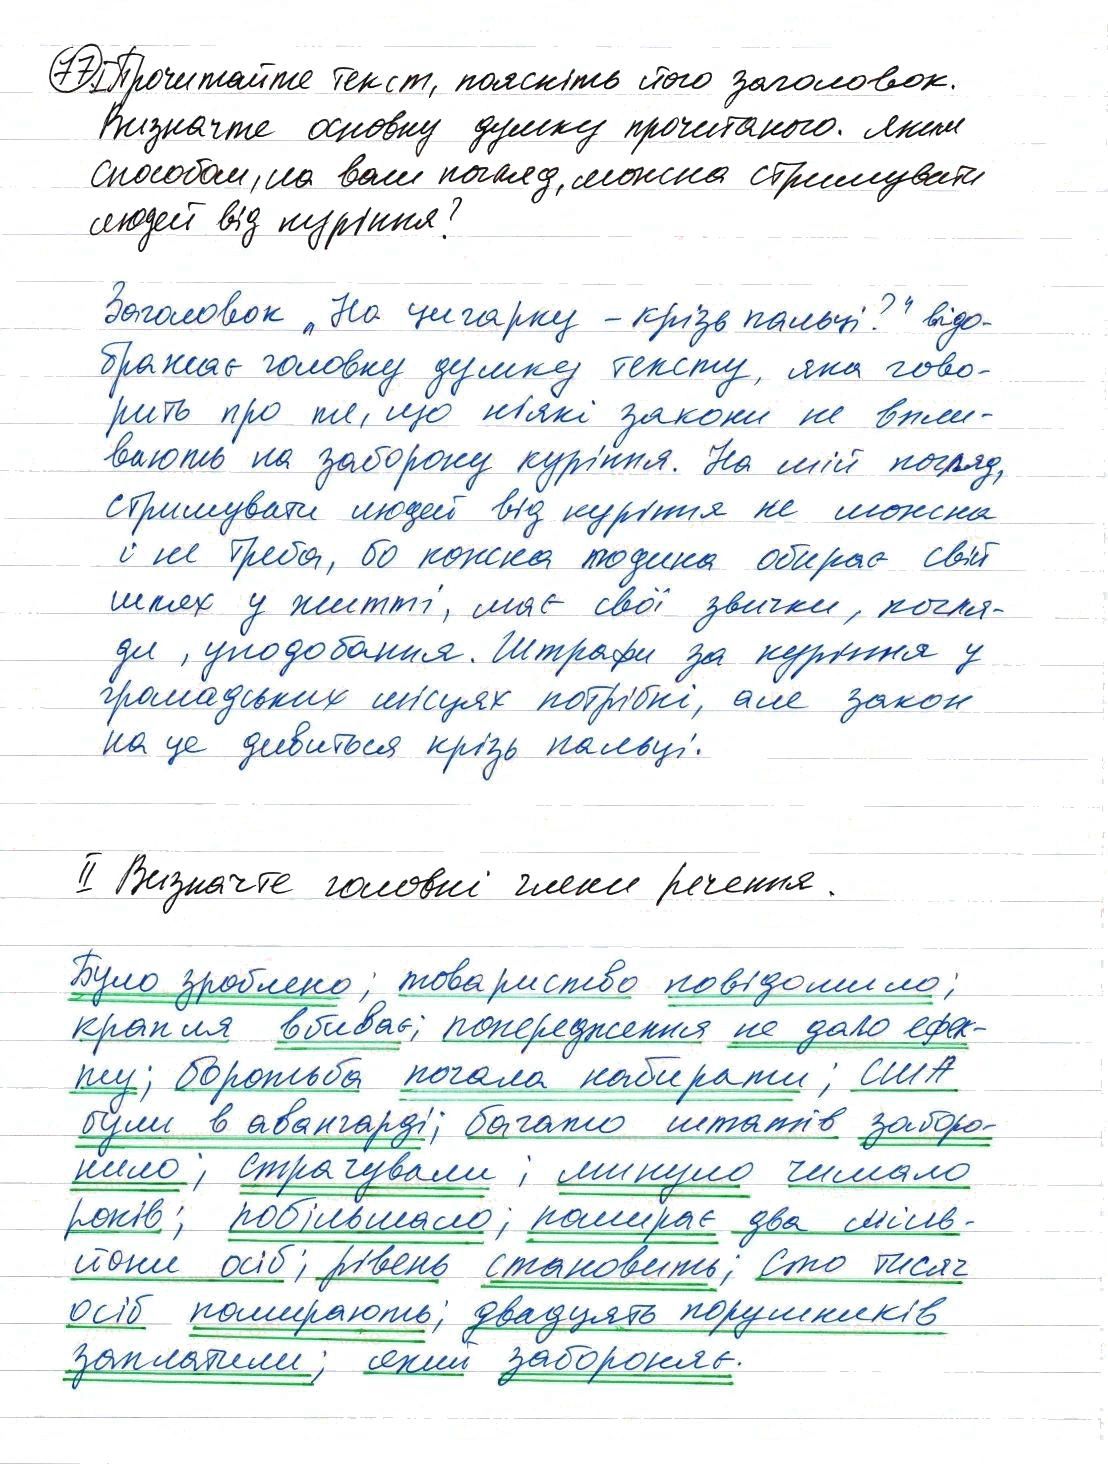 77 I Прочитайте текст, поясніть його заголовок.
Визначте основну думку прочитаного. Яким
способом, на ваш погляд, можна стримувати
людей від куріння?
Заголовок „На цигарку – крізь пальці?" відо-
бражає головну думку тексту, яка гово-
рить про те, що ніякі закони не впли-
вають на заборону куріння. На мій погляд,
стримувати людей від куріння не можна
і не треба, бо кожна людина обирає свій
шлях у житті, має свої звички, погля-
ди, уподобання. Штрафи за куріння у
громадських місцях потрібні, але закон
на це дивиться крізь пальці.
II Визначте головні члени речення.
Було зроблено; товариство повідомило;
крапля вбиває; попередження не дало ефек-
ту; боротьба почала набирати; США
були в авангарді; багато штатів заборо-
нило; страчували; минуло чимало
років; побільшало; помирає два міль-
йони осіб; рівень становить; сто тисяч
осіб помирають; двадцять порушників
заплатили; який забороняє.